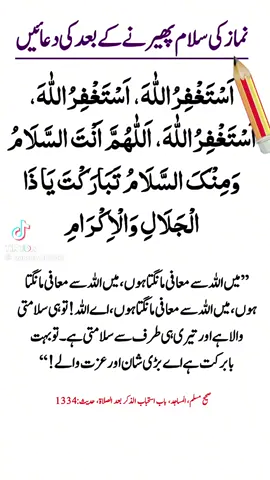 نماز کی سلام پھیرنے کے بعد کی دعائیں
اَسْتَغْفِرُ اللهَ، اَسْتَغْفِرُ اللهَ،
اَسْتَغْفِرُ اللهَ، اَللّٰهُمَّ اَنْتَ السَّلَامُ
وَمِنْكَ السَّلَامُ تَبَارَكْتَ يَا ذَا
الْجَلَالِ وَالْاِكْرَامِ
”میں اللہ سے معافی مانگتا ہوں، میں اللہ سے معافی مانگتا
ہوں، میں اللہ سے معافی مانگتا ہوں، اے اللہ! تو ہی سلامتی
والا ہے اور تیری ہی طرف سے سلامتی ہے۔ تو بہت
بابرکت ہے اے بڑی شان اور عزت والے!“
صحیح مسلم، المساجد، باب استحباب الذکر بعد الصلاۃ، حدیث: 1334